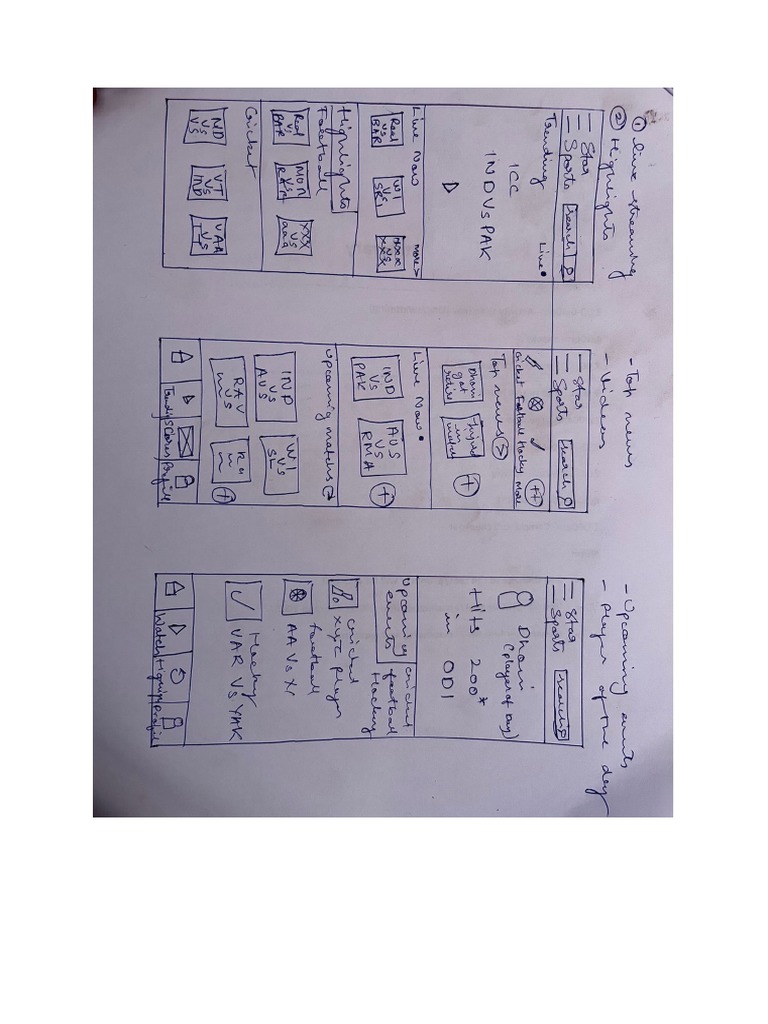 ① live streaming
② Highlights
Star
Sports
Search
Trending
Live
ICC
IND Vs PAK
Live Now
More >
Real
vs
BAR
WI
vs
SRI
XXX
Highlights
Football
Real
vs
BAR
MUN
vs
XXX
vs
Cricket
IND
VS
VS
VT
VS
IND
UAA
VS
- Top news
- Videos
Star
Sports
Search
Cricket Football Hockey More
Top news >
Dhoni
got
retire
in
Live Now
IND
VS
PAK
AUS
VS
RMA
Upcoming matches
IND
VS
AUS
WI
VS
SL
RAV
vs
Profile
- Upcoming events
- Player of the day
Star
Sports
Search
Dhoni
(player of Day)
Hits 200*
in ODI
Upcoming
events
cricket
football
Hockey
cricket
XYZ player
football
AA Vs
Hockey
VAR Vs YAK
Watch
Profile